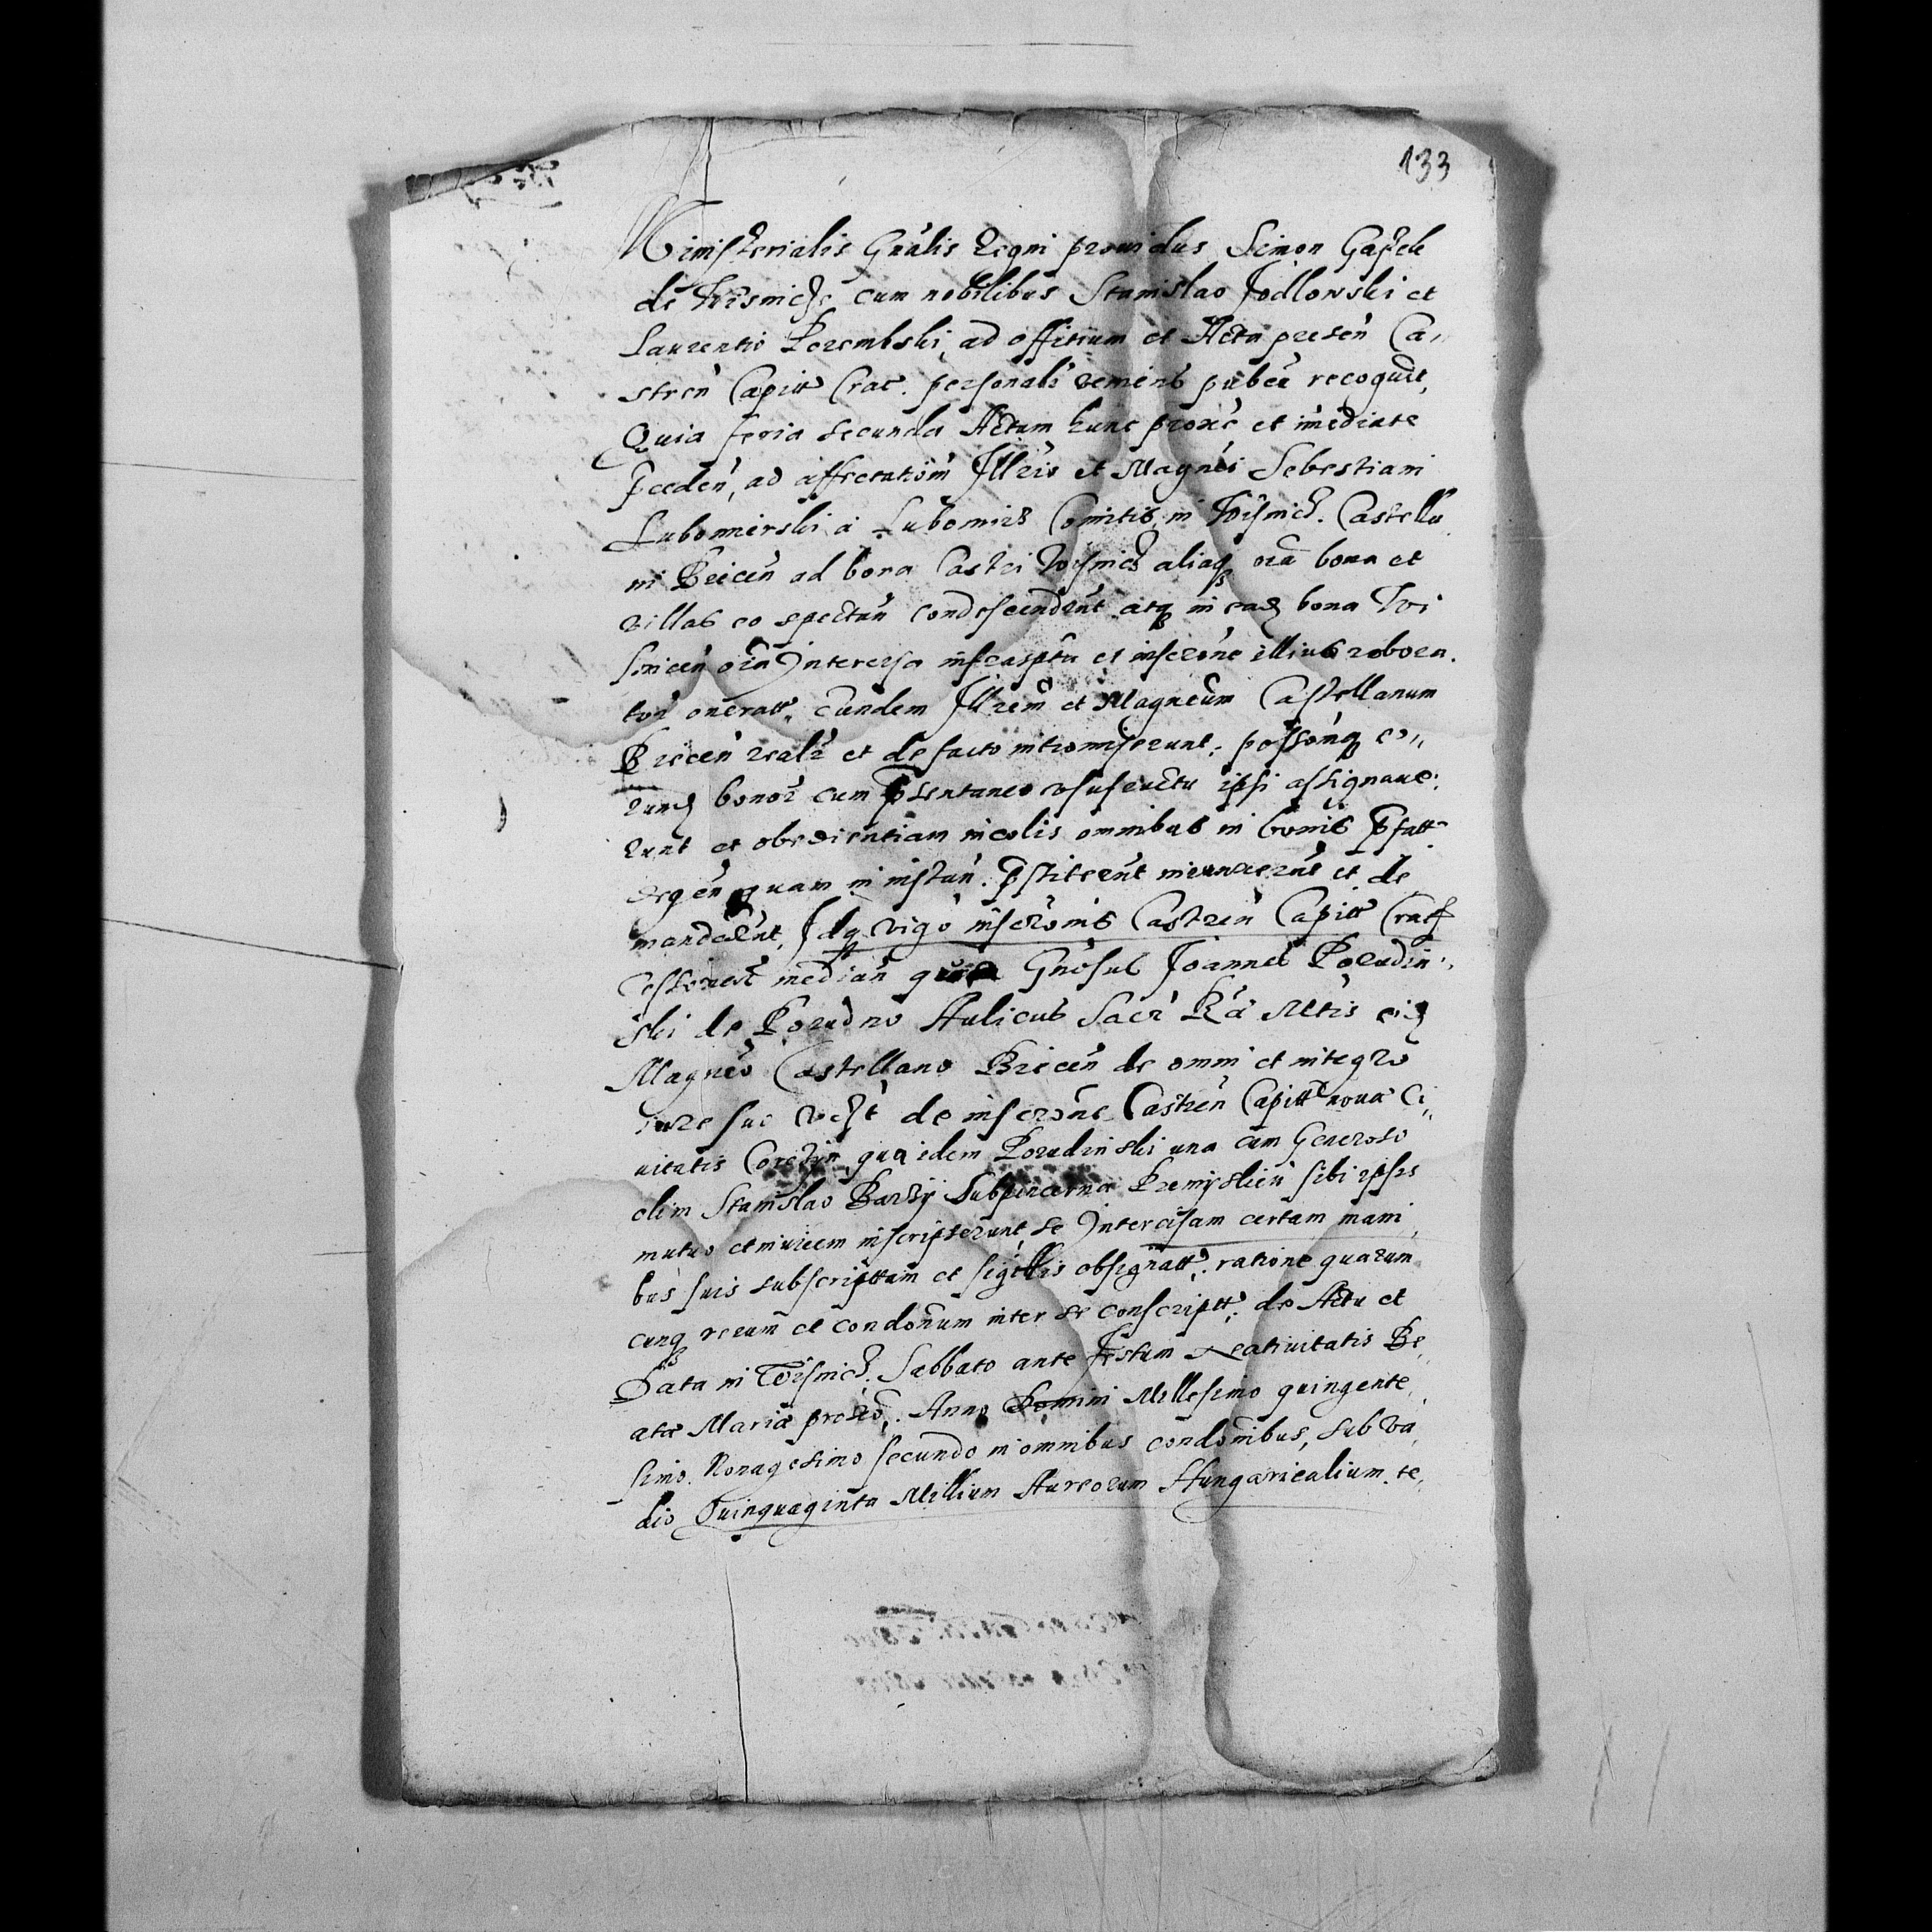 133
Ministerialis Gnalis Regni prouidus Simon Gassek
de Wisnicze cum nobilibus Stanislao Jodlowski et
Laurentio Porembski, ad offitium et Acta presen Ca,,
stren Capitt Crac. personalr veniens puber recoguit,
Quia feria secunda Actum hunc proxe et imediate
pceden, ad affectatiom Illris et Magnci Sebestiani
Lubomirski a Lubomirz Comitis in Wisnicz. Castella
ni Biecen ad bona Castri Wisnicz aliaq oia bona et
villas eo spectan condescenderunt atq in eadz bona Wi
snicen oia Interersa infrascpta et inscrone illius robora.
tor oneratt. eundem Illrem et Magncum Castellanum
Biecen realr et de facto intromiserunt, possonq eo,,
rundz bonor cum psentaneo usufructu ipsi assignaue:
runt et obedientiam incolis omnibus in bonis pfatt
degen quam in instan. pstiterunt iniunxerunt et de
mandarunt, Idq vigo inscronis Castren Capitt Crac
median qua Gnosus Joannes Porudin.,
ski de Porudno Aulicus Sacr Ra Mtis eidz
Magnco Castellano Biecen de omni et integro
iure suo de inscrone Castren Capitt noua Ci,,
uitatis Corczin, qua idem Porudinski una cum Generoso
olim Stanislao Barzy Subpincerna Premyslien sibi ipsis
mutuo et inuicem inscripserunt, se Intercisam certam mani,
bus suis subscripttam et sigillis obsignatt. ratione quarum
cunq rerum et condonum inter se conscriptt: de Actu et
Data in Wisnicz. Sabbato ante festum Natiuitatis Be,,
atae Mariae proxo,. Anno Domini Millesimo quingente,
simo. Nonagesimo secundo in omnibus condonibus, sub va,
dio Quinquaginta Millium Aureorum Hungaricalium. te,,